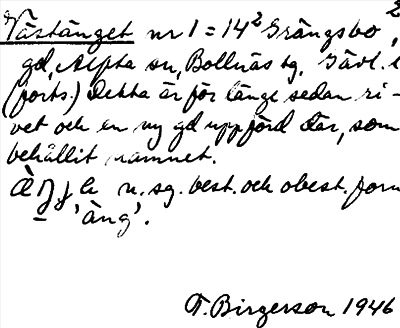 Västänget nr 1 = 14² Grängsbo 2,
gd, Alfta sn, Bollnäs tg. Gävl. l
(forts.) Detta är för länge sedan ri-
vet och en ny gd uppförd där, som
behållit namnet.
n. sg. best. och obest. form
'äng'.
T. Birgerson 1946